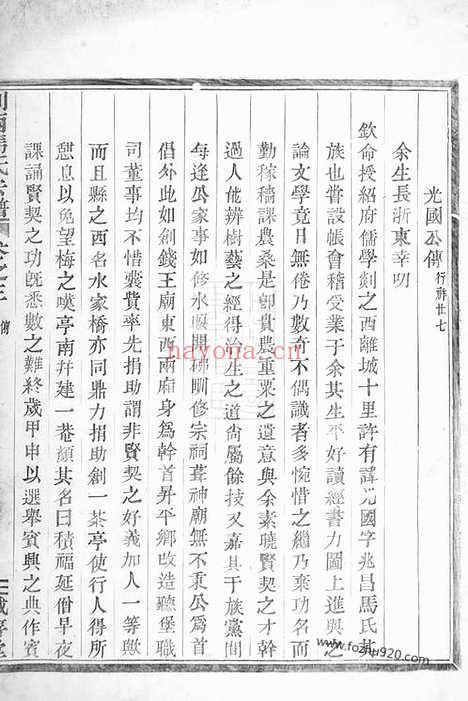 光國公傳 行祥廿七
余生長浙東幸叨
欽命授紹府儒學剡之西離城十里許有諱光國字兆昌馬氏其
族也嘗設帳會稽受業于余其生平好讀經書力圖上進與
論文學竟日無倦乃數奇不偶識者多惋惜之繼乃棄功名而
勤稼穡課農桑是卽貴農重粟之遺意與余素曉賢契之才幹
過人能辨樹藝之經得治生之道尚屬餘技又嘉其于族黨間
每逢公家事如修水堰開梯圳修宗祠葺神廟無不秉公爲首
倡外此如創錢王廟東西兩廂身爲幹首昇平鄉改造聽堡職
司董事均不惜囊貲率先捐助謂非賢契之好義加人一等歟
而且縣之西名水家橋亦同鼎力捐助創一茶亭使行人得所
憇息以免望梅之嘆亭南幷建一菴顏其名曰積福延僧早夜
課誦賢契之功旣悉數之難終歲甲申以選舉賓興之典作賓
馬氏宗譜 卷之三 傳
hayona.cn
www.fozhu920.com